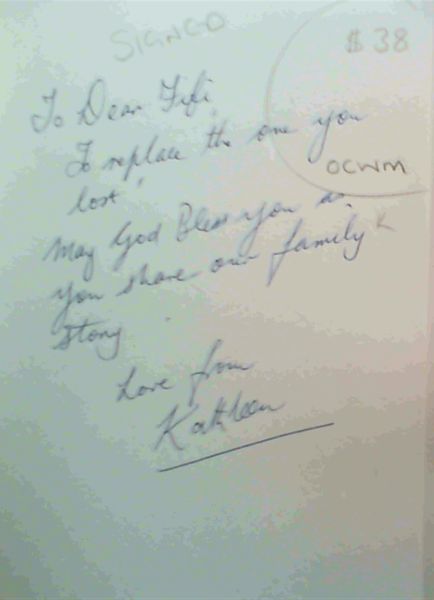 SIGNED
$38
To Dear Fifi
To replace 'the one you
lost'
OCWM
May God Bless you as
you share our family
story
Love from
Kathleen